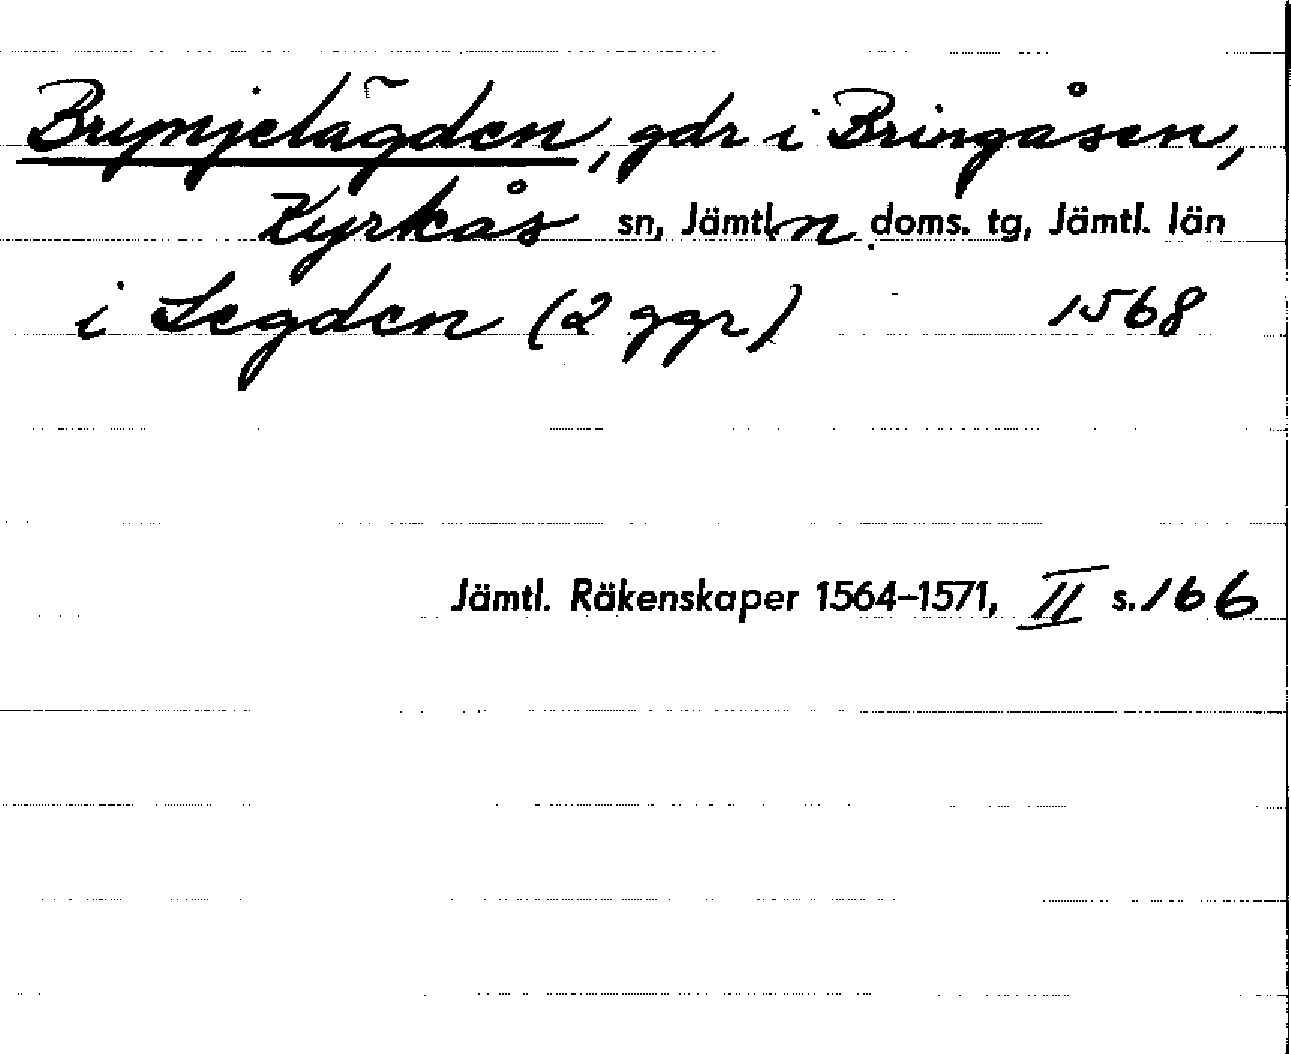 Brynjelägden, gdr i Bringåsen,
Kyrkås sn, Jämtl n doms. tg, Jämtl. län
i Legden (2 ggr) 1568
Jämtl. Räkenskaper 1564-1571, II s. 166